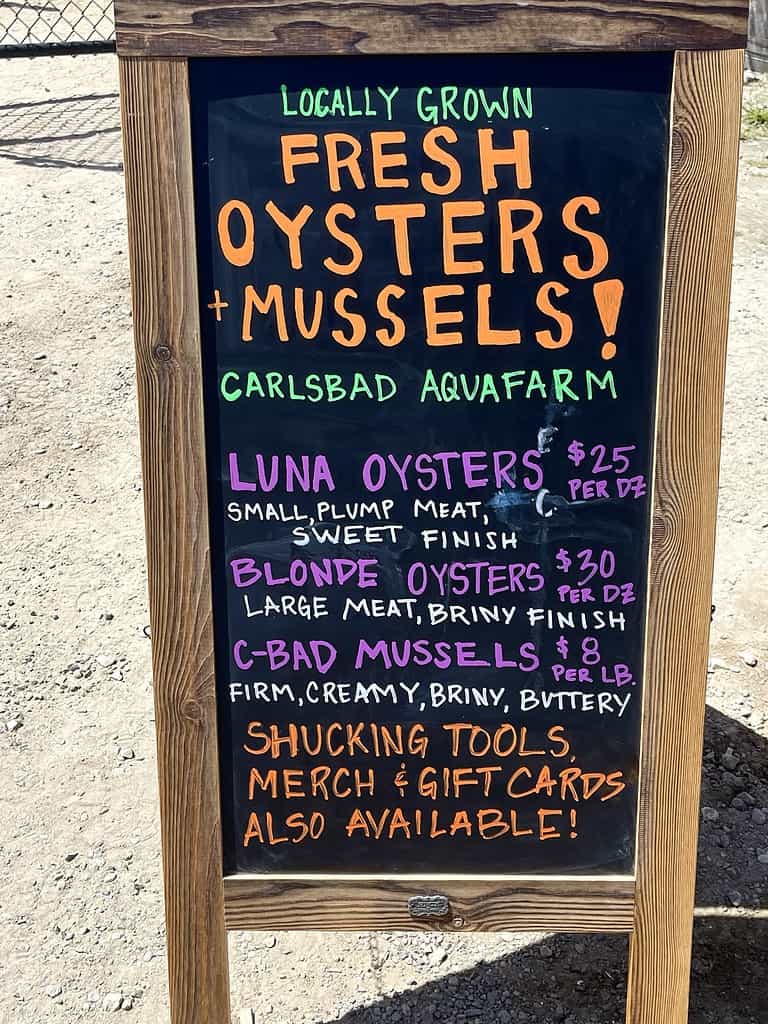 LOCALLY GROWN
FRESH
OYSTERS
+ MUSSELS!
CARLSBAD AQUAFARM
LUNA OYSTERS $25
PER DZ
SMALL, PLUMP MEAT,
SWEET FINISH
BLONDE OYSTERS $30
PER DZ
LARGE MEAT, BRINY FINISH
C-BAD MUSSELS $8
PER LB.
FIRM, CREAMY, BRINY, BUTTERY
SHUCKING TOOLS,
MERCH & GIFT CARDS
ALSO AVAILABLE!